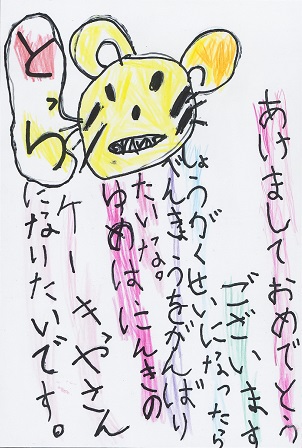 あけましておめでとう
ございます
しょうがくせいになったら
べんきょうをがんばり
たいな。
ゆめはにんきの
ケーキやさん
になりたいです。
とら